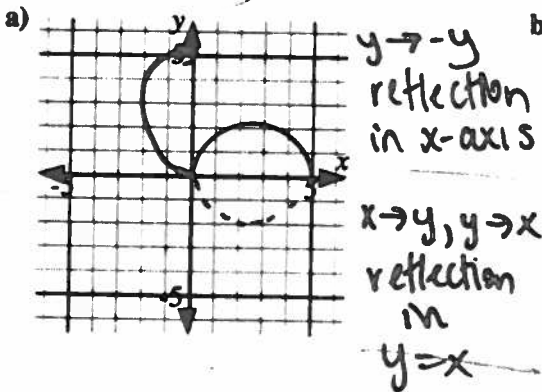 a)
y
x
-5
y → -y
reflection
in x-axis
x → y, y → x
reflection
in
y = x
b